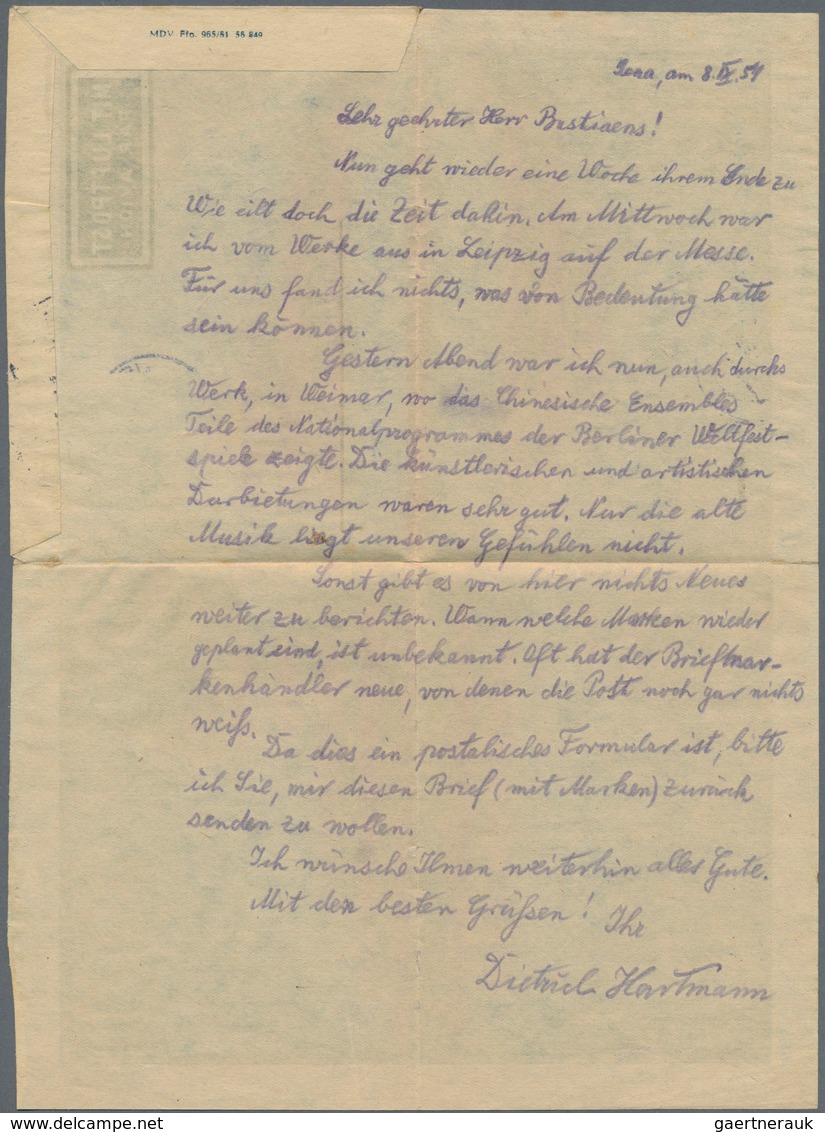 MDV Ffo. 965/81 55 849
Jena, am 8.IX.51
Sehr geehrter Herr Bastiaens!
Nun geht wieder eine Woche ihrem Ende zu
Wie eilt doch die Zeit dahin. Am Mittwoch war
ich vom Werke aus in Leipzig auf der Messe.
Für uns fand ich nichts, was von Bedeutung hätte
sein können.
Gestern Abend war ich nun, auch durchs
Werk, in Weimar, wo das Chinesische Ensembles
Teile des Nationalprogrammes der Berliner Weltfest-
spiele zeigte. Die künstlerischen und artistischen
Darbietungen waren sehr gut. Nur die alte
Musik liegt unseren Gefühlen nicht.
Sonst gibt es von hier nichts Neues
weiter zu berichten. Wann welche Marken wieder
geplant sind, ist unbekannt. Oft hat der Briefmar-
kenhändler neue, von denen die Post noch gar nichts
weiß.
Da dies ein postalisches Formular ist, bitte
ich Sie, mir diesen Brief (mit Marken) zurück
senden zu wollen.
Ich wünsche Ihnen weiterhin alles Gute.
Mit den besten Grüßen!
Ihr
Dietrich Hartmann
gaertnerauk